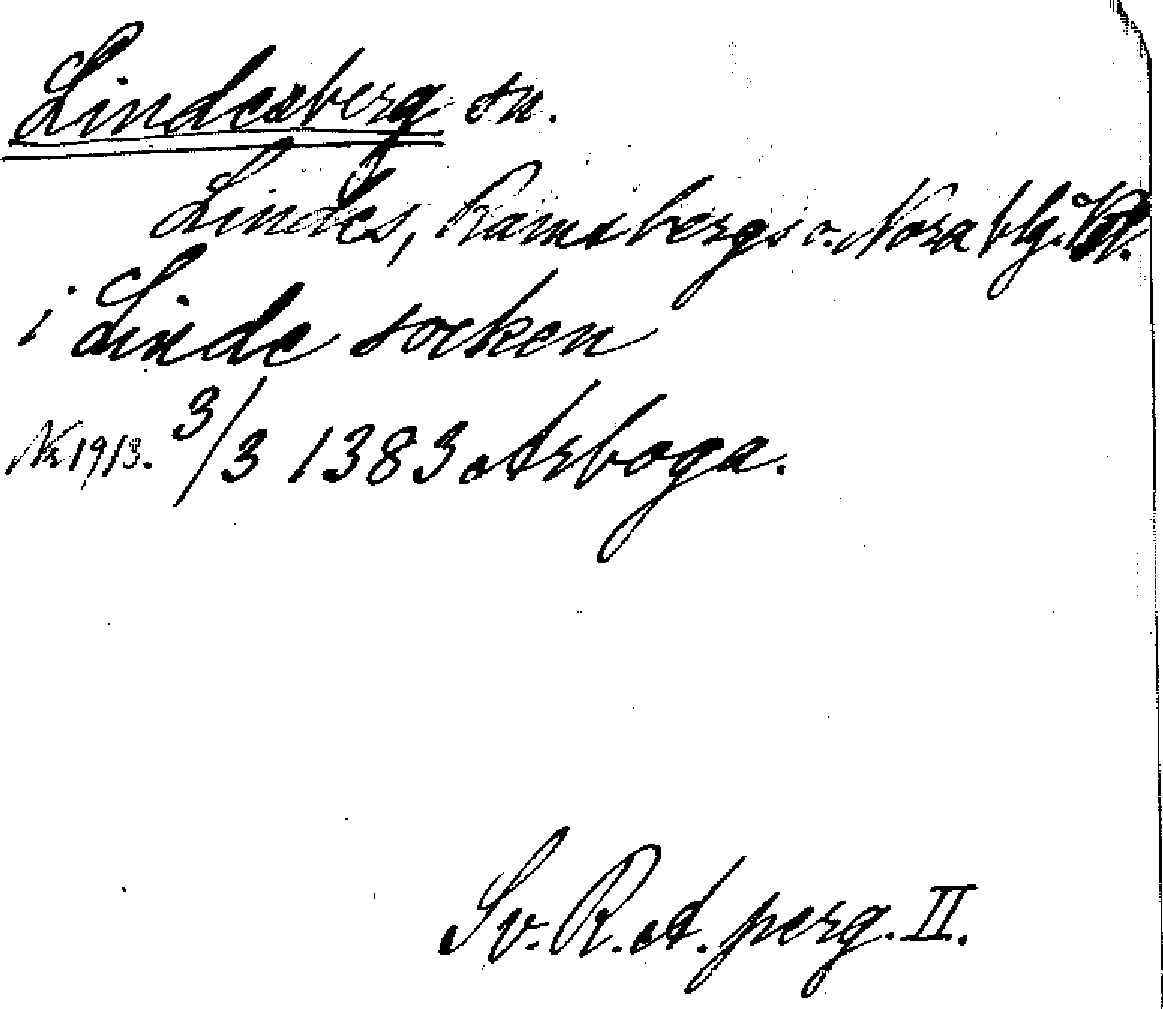 Lindesberg sn.
Lindes, Ramsbergs o. Nora blg.
i Linde socken
Nr 1913. 3/3 1383 Arboga.
Sv. R. A. perg. II.